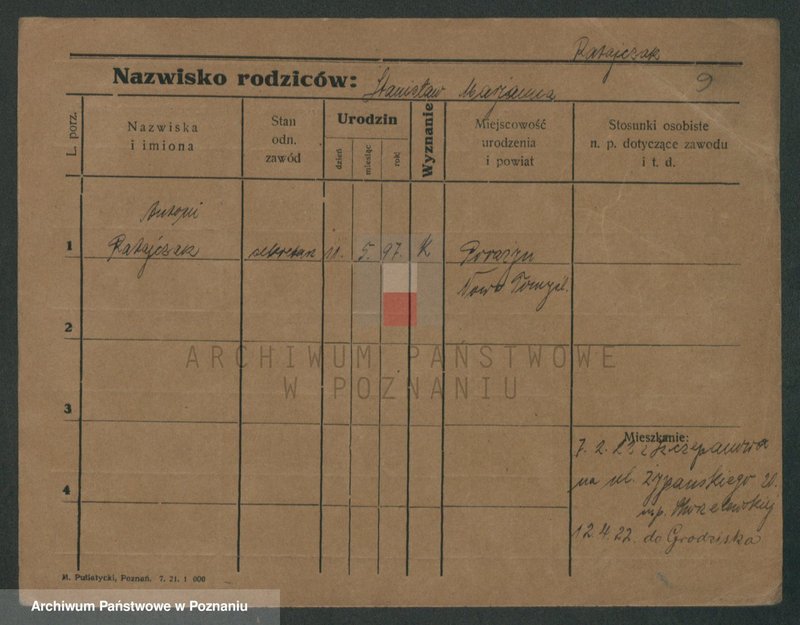 Ratajczak
Nazwisko rodziców: Stanisław Marjanna 9
L. porz.
Nazwiska i imiona
Stan odn. zawód
Urodzin
dzień
miesiąc
rok
Wyznanie
Miejscowość urodzenia i powiat
Stosunki osobiste n. p. dotyczące zawodu i t. d.
Antoni
1 Ratajczak sekretarz 11. 5. 97. K
Nowo Tomyśl.
2
ARCHIWUM PAŃSTWOWE
W POZNANIU
3
Mieszkanie:
7. 2. z Szczepanowa
4 na ul. 20.
12.4.22. do Grodziska
M. Putiatycki, Poznań. 7. 21. 1 000
Archiwum Państwowe w Poznaniu